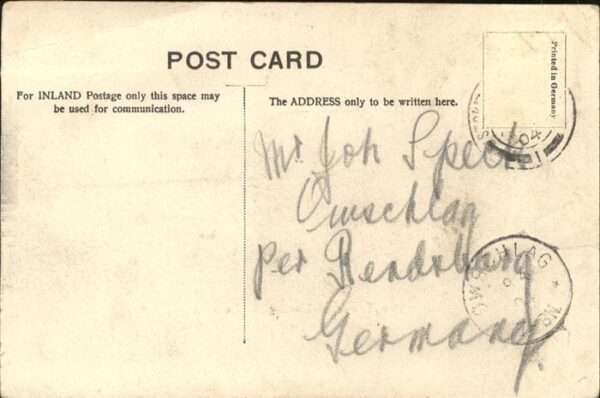 POST CARD
Printed in Germany
For INLAND Postage only this space may
be used for communication.
The ADDRESS only to be written here.
04
Mr Joh Speck
Owschlag
per Rendsburg
Germany